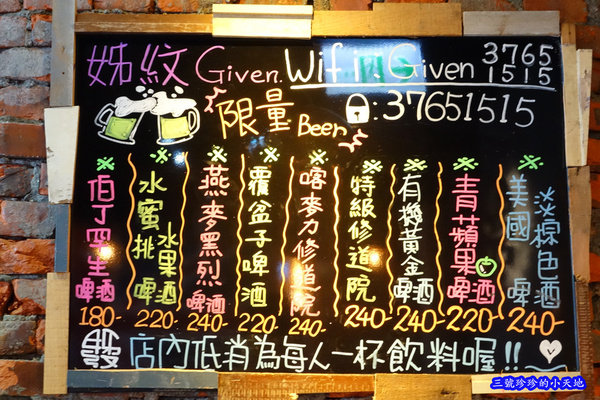 姊紋 Given. Wifi. Given 3765
1515
:37651515
限量 Beer
伯丁罕生啤酒 180-
水蜜桃水果啤酒 220-
燕麥黑烈啤酒 240-
覆盆子啤酒 220-
喀麥力修道院 240-
特級修道院 240-
有機黃金啤酒 240-
青蘋果啤酒 220-
美國淡棕色啤酒 240-
店內低消為每人一杯飲料喔!!
三號珍珍的小天地